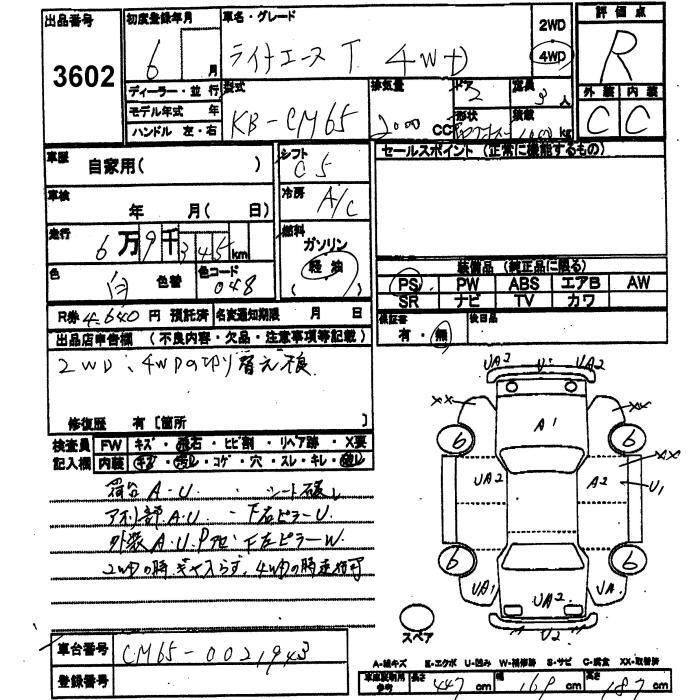 出品番号
3602
初度登録年月
6 月
車名・グレード
ライトエース T 4WD
2WD
4WD
評価点
R
外装 内装
C C
ディーラー・並行
モデル年式 年
ハンドル 左・右
型式
KB-CM65
排気量
2000 CC
ドア
2
形状
定員
3人
積載
kg
車歴
自家用( )
シフト
C5
セールスポイント (正常に機能するもの)
車検
年 月( 日)
冷房
A/C
走行
6万9千345km
燃料
ガソリン
軽油
色
白 色替
色コード
048
装備品 (純正品に限る)
PS PW ABS エアB AW
SR ナビ TV カワ
R券 4,640 円 預託済 名変通知期限 月 日
保証書
有・無
後日品
出品店申告欄 (不良内容・欠品・注意事項等記載)
2WD、4WDの切り替え不良
修復歴 有 [箇所 ]
検査員
記入欄
FW キズ・飛石・ヒビ割・リペア跡・X要
内装 キズ・汚レ・コゲ・穴・スレ・キレ・破レ
荷台 A.U. ・シート破レ
アオリ部 A.U. ・下右ピラーU.
外装 A.U.P他 ・下左ピラーW.
2WDの時ギヤ入らず、4WDの時走行可
車台番号
CM65-0021943
登録番号
UA2 U UA2
XX XX
A1
6 6
UA2 A2 XX
U1
6 6
UA1 UA2 UA
U2
スペア
A-線キズ E-エクボ U-凹み W-補修跡 S-サビ C-腐食 XX-取替済
車庫証明用参考
長さ 447 cm 幅 169 cm 高さ 187 cm